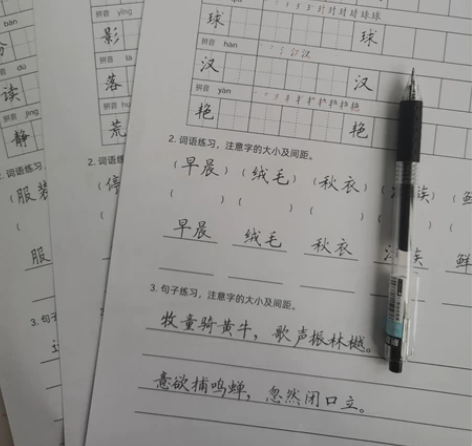 拼音 yǐng
影
拼音
落
拼音
荒
拼音 dú
读
拼音 jìng
静
2. 词语练习，
（服装
服
3. 句子
2. 词语
（停
球 球
拼音 hàn
汉 汉
拼音 yàn
艳 艳
2. 词语练习，注意字的大小及间距。
（早晨）（绒毛）（秋衣）（ 族）（鲜
（ ）（ ）（ ）（
早晨 绒毛 秋衣 族 鲜
3. 句子练习，注意字的大小及间距。
牧童骑黄牛，歌声振林樾。
意欲捕鸣蝉，忽然闭口立。